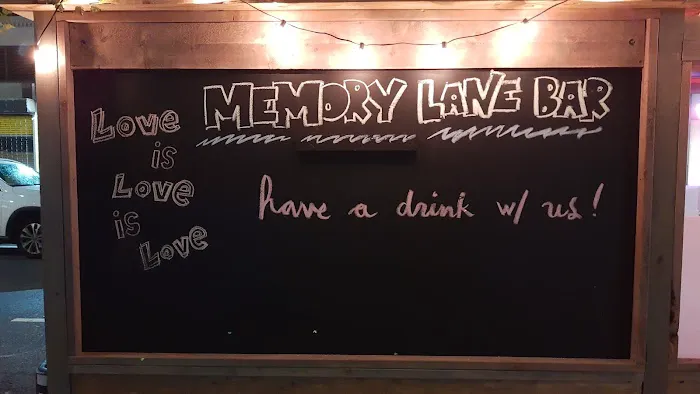 MEMORY LANE BAR
Love
is
Love
is
Love
have a drink w/ us!